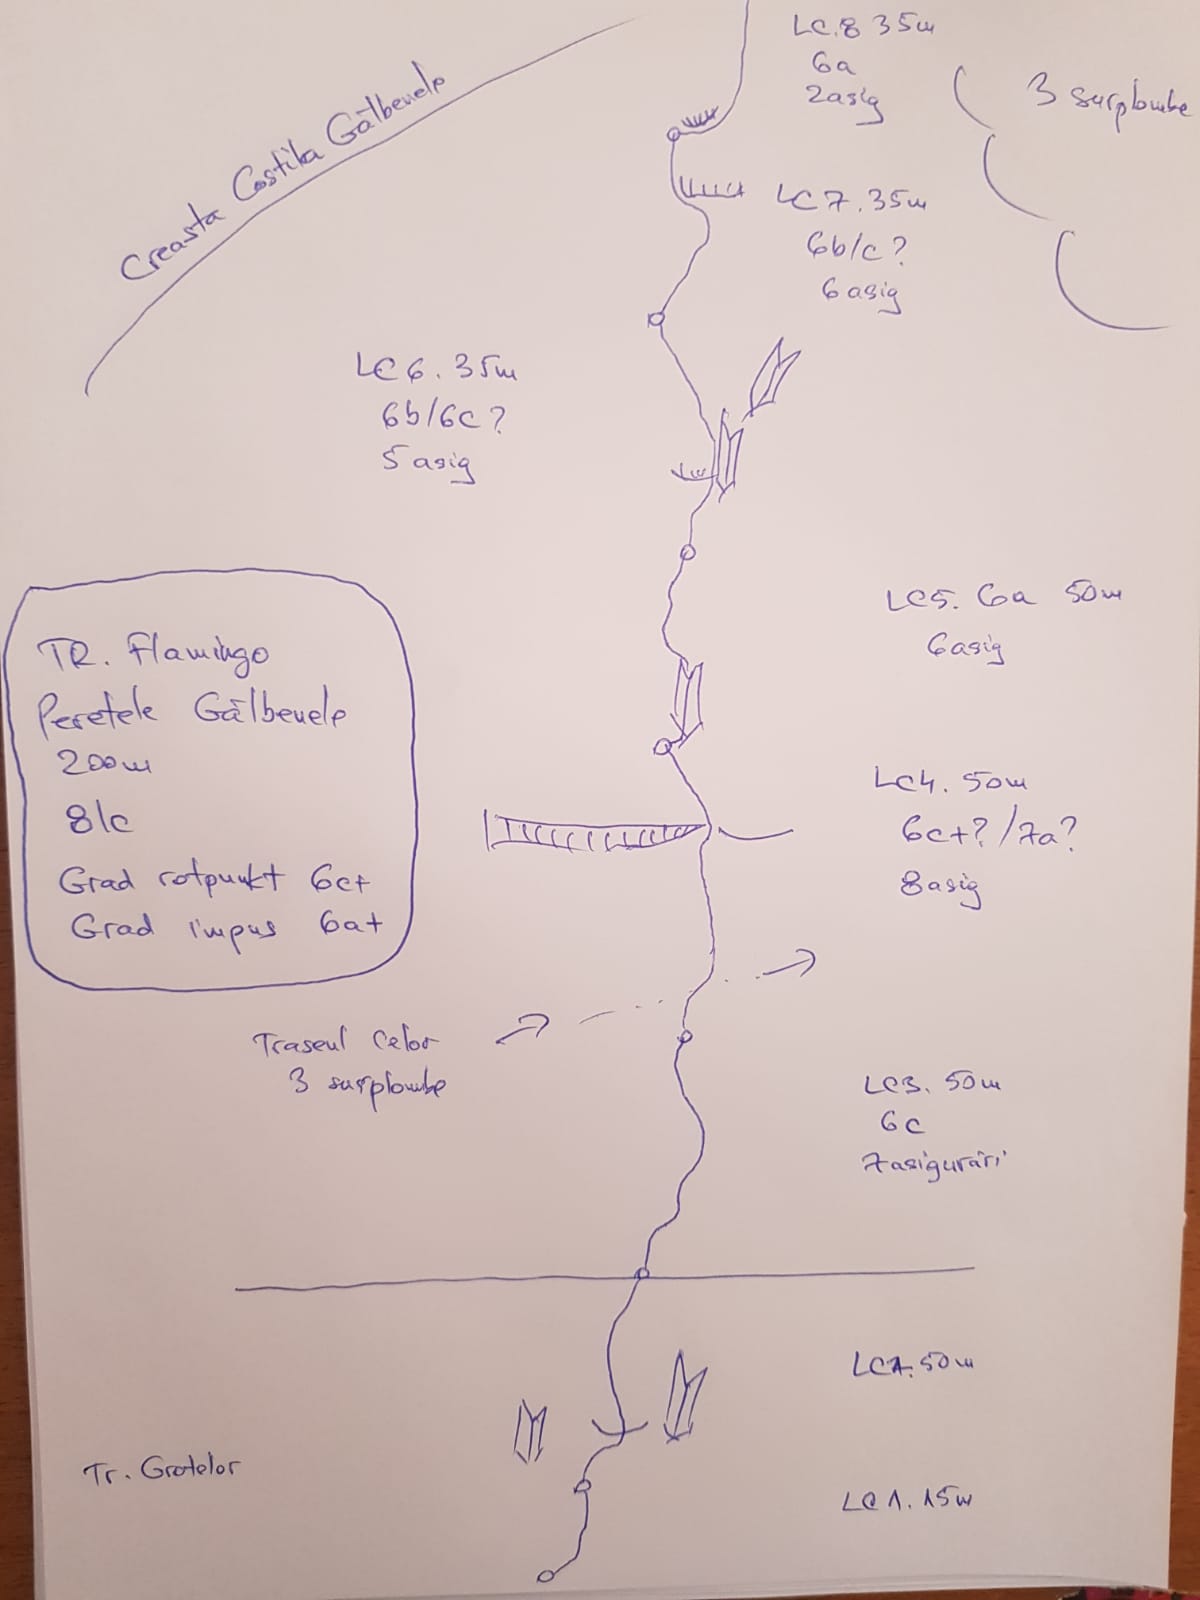 LC.8 35m
6a
2asig
3 surplombe
Creasta Costila Gălbenele
LC7. 35m
6b/c?
6asig
LC6. 35m
6b/6c?
5asig
LC5. 6a 50m
6asig
TR. Flamingo
Peretele Gălbenele
200m
8/c
Grad rotpunkt 6c+
Grad impus 6a+
LC4. 50m
6c+?/7a?
8asig
Traseul Celor
3 surplombe
LC3. 50m
6c
7asigurări
50m
Tr. Grotelor
LC1. 15m